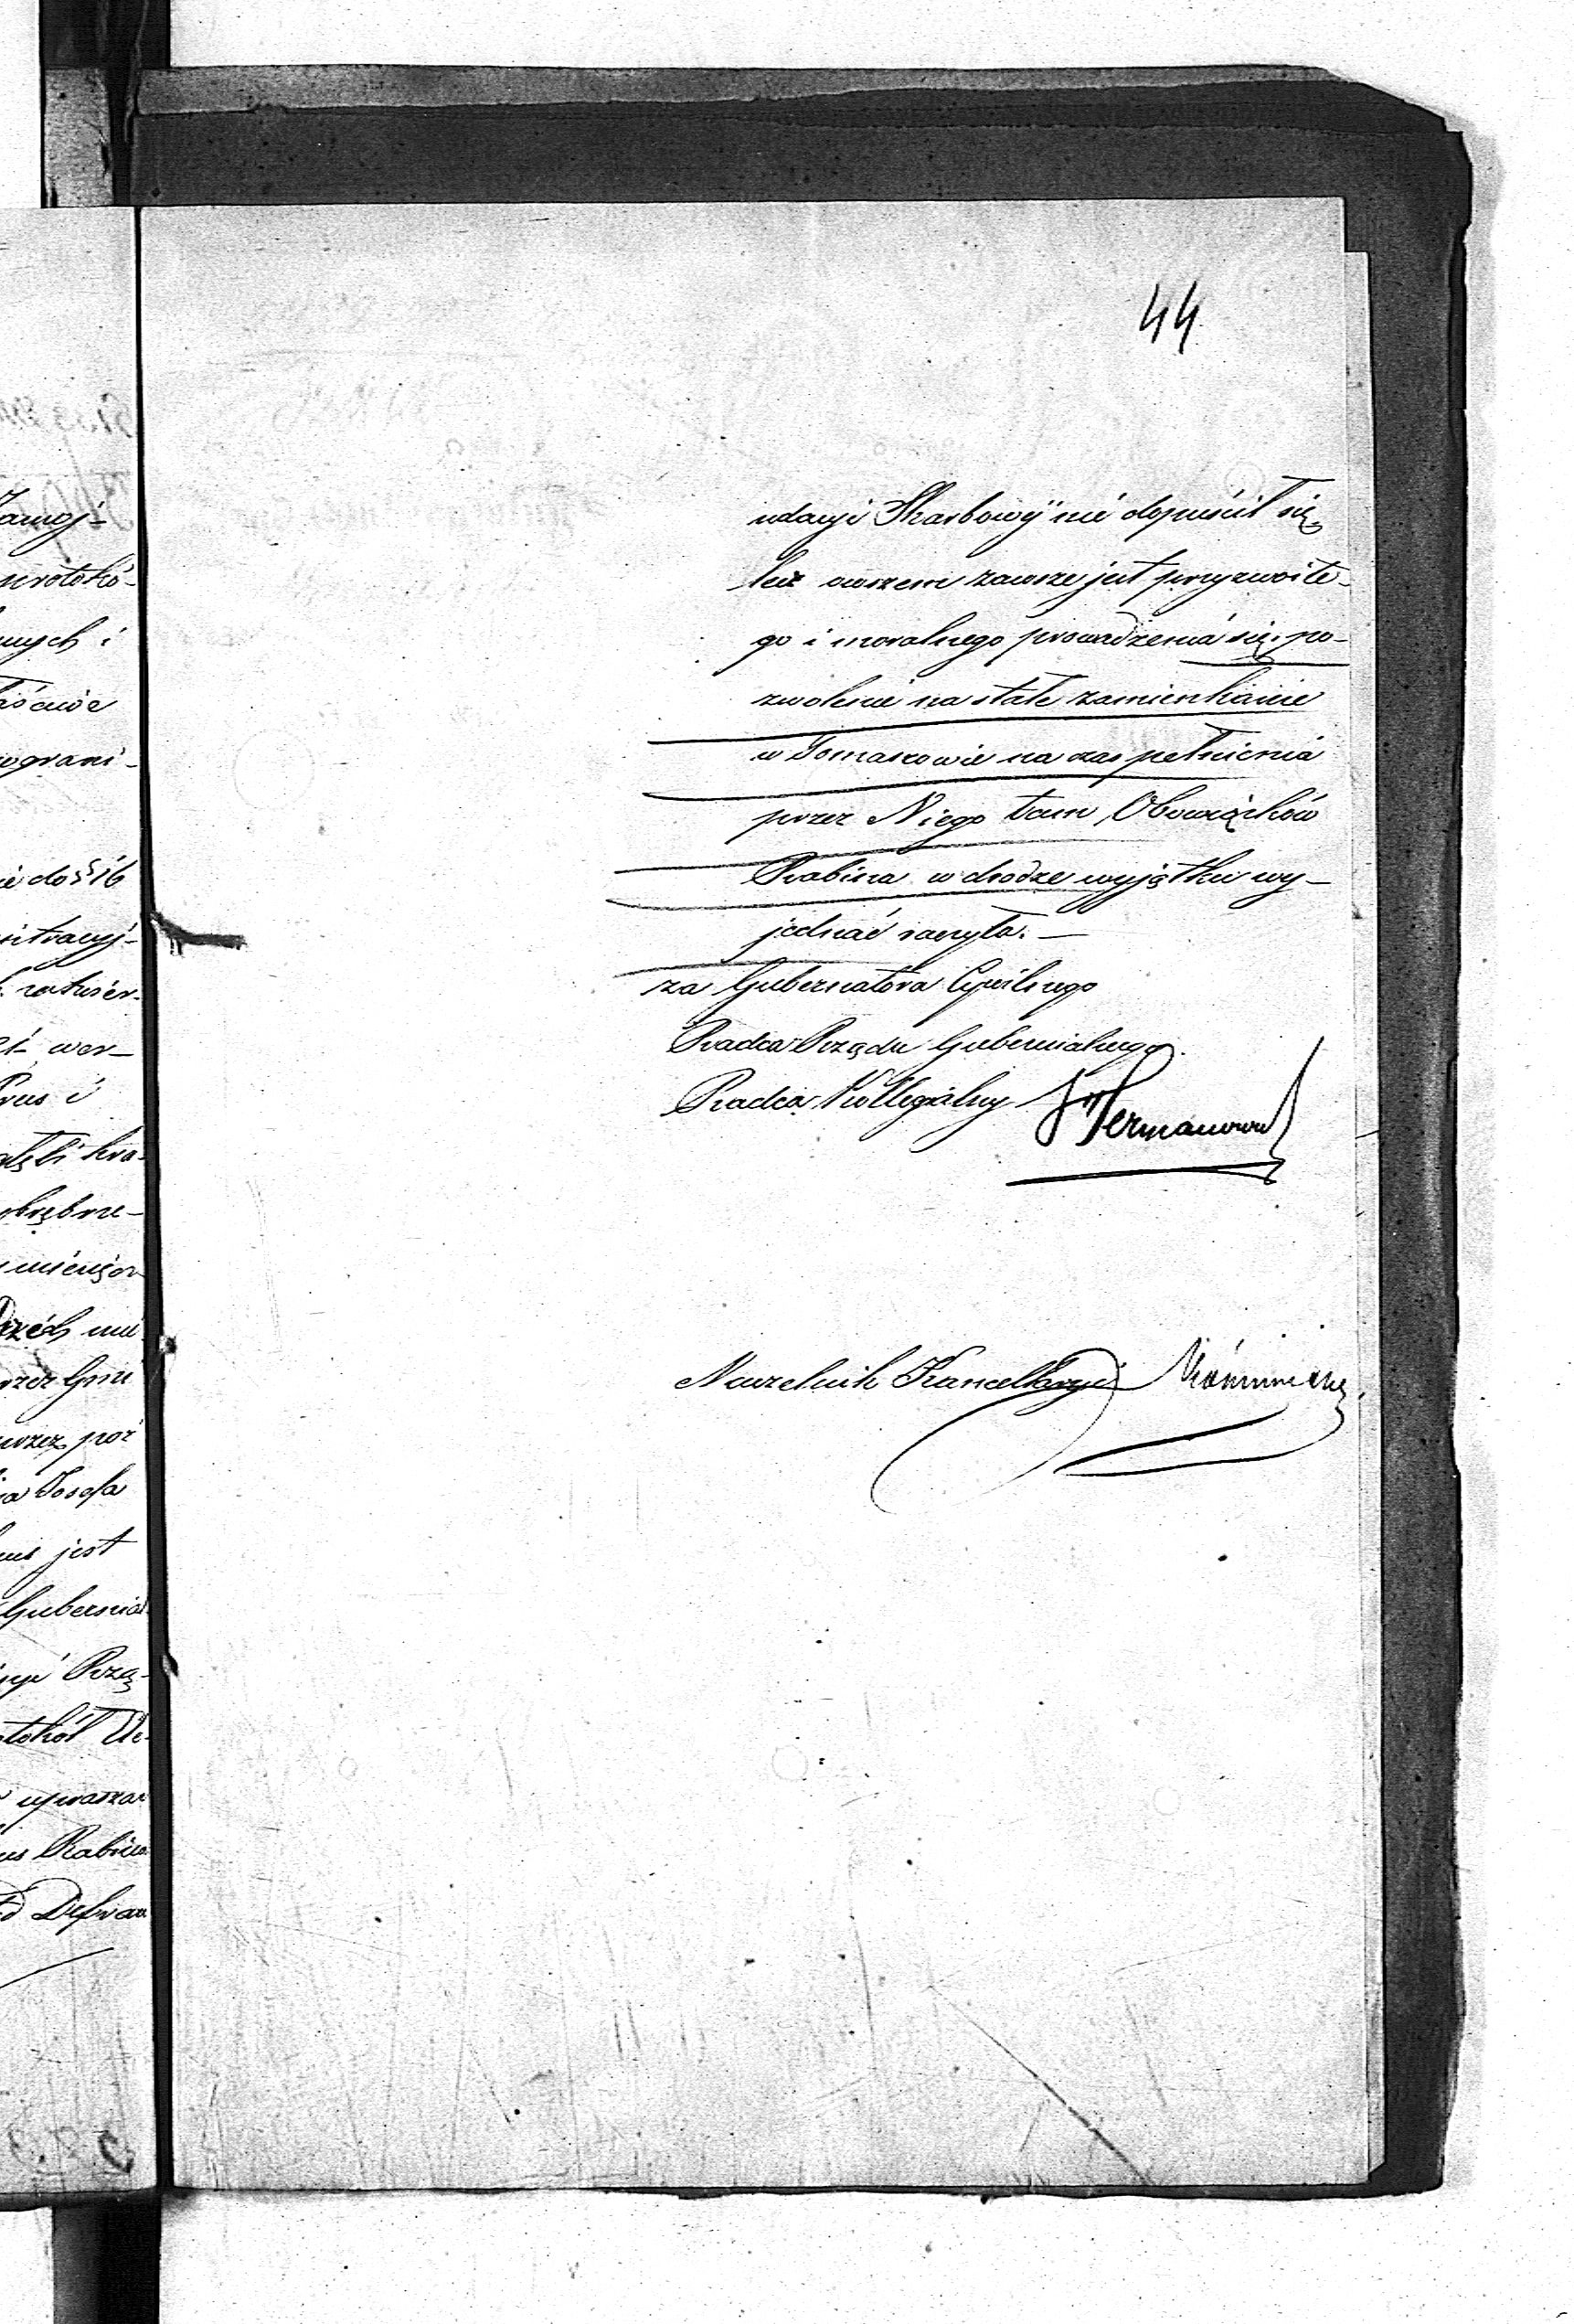 44
udacyi Skarbowÿ nie dopuścił się,
lecz owszem zawsze jest przyzwoite-
go i moralnego prowadzenia się, po-
zwolenie na stałe zamieszkanie
w Tomaszowie na czas pełnienia
przez Niego tam Obowiązków
Rabina w drodze wyjątku wy-
jednać raczyła. —
za Gubernatora Cywilnego
Radca Rządu Gubernialnego
Radca Kollegialny
Naczelnik Kancellaryi
Zamoj-
protokó-
nych i
ograni-
do § 16
wer-
Prus i
obrębne-
przez
Josefa
jest
Gubernial
Rzą-
upraszar
Rabin
Defrau